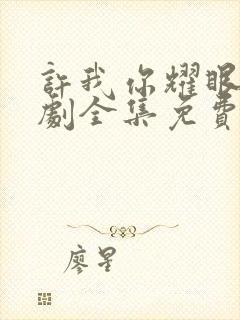 許我你耀眼
劇全集免費
廖星